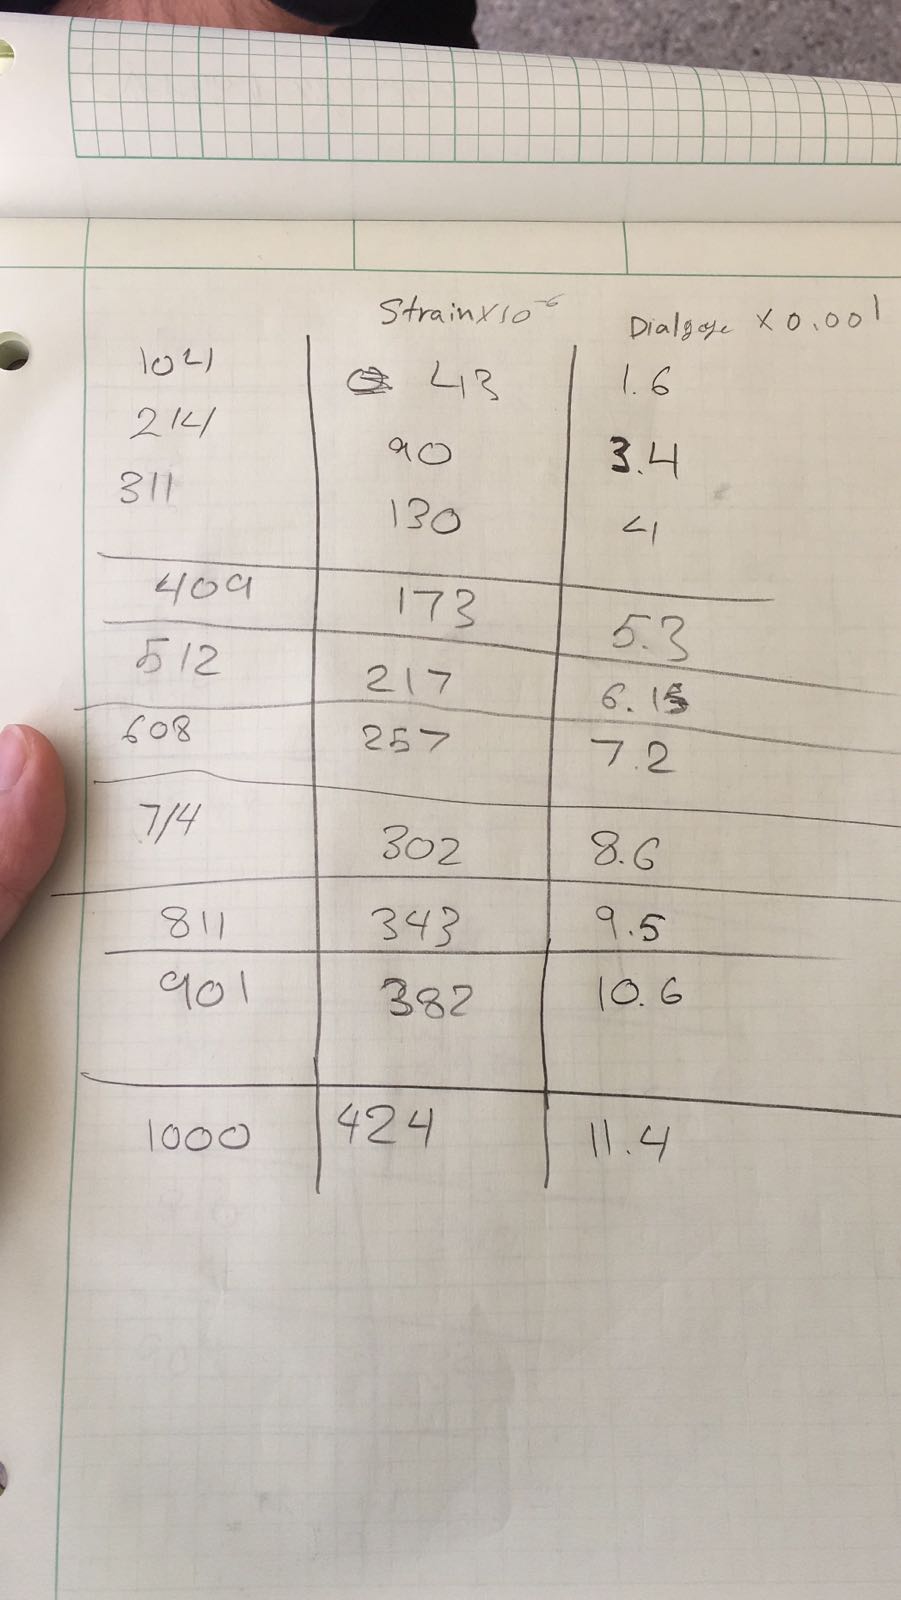 Strain×10⁻⁶ Dialgage ×0.001
104 43 1.6
214 90 3.4
311 130 4
409 173 5.3
512 217 6.1
608 257 7.2
714 302 8.6
811 343 9.5
901 382 10.6
1000 424 11.4